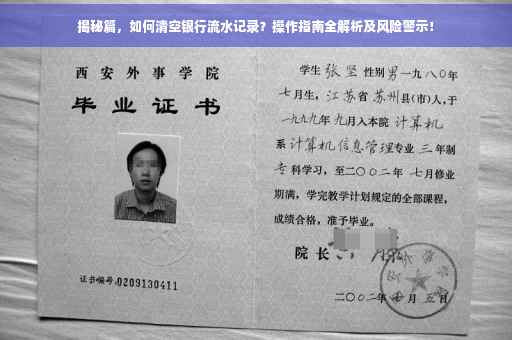 揭秘篇，如何清空银行流水记录？操作指南全解析及风险警示！
西安外事学院
毕业证书
证书编号:0209130411
学生 张坚 性别 男 一九八〇年
七月生，江苏省 苏州县(市)人,于
一九九九年 九月入本院 计算机
系 计算机信息管理专业 三 年制
专 科学习，至二〇〇二年 七月修业
期满，学完教学计划规定的全部课程，
成绩合格，准予毕业。
院 长
二〇〇二年 七 月 五 日